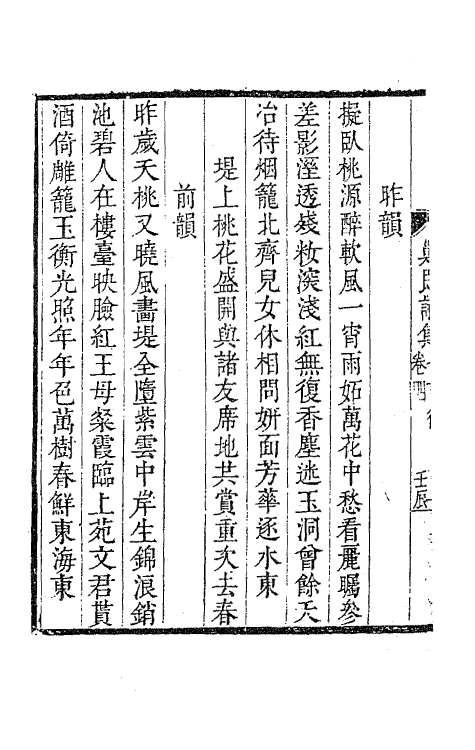 昨韻
擬臥桃源醉軟風一宵雨妬萬花中愁看麗矚參
差影溼透殘妝深淺紅無復香塵迷玉洞曾餘夭
冶待烟籠北齊兒女休相問妍面芳華逐水東
堤上桃花盛開與諸友席地共賞重次去春
前韻
昨歲夭桃又曉風畵堤全墮紫雲中岸生錦浪銷
池碧人在樓臺映臉紅王母粲霞臨上苑文君貰
酒倚雕籠玉衡光照年年色萬樹春鮮東海東
卷
壬辰